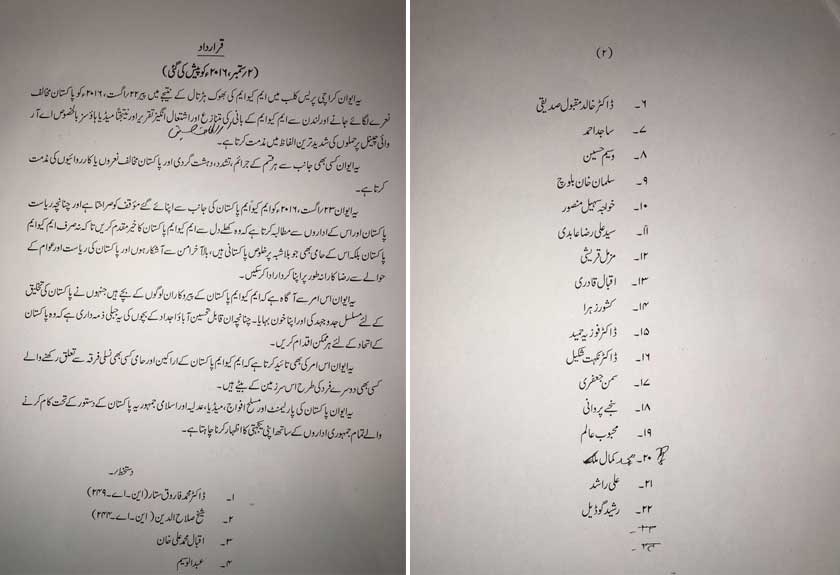 قرارداد
(۲ ستمبر، ۲۰۱۶ء کو پیش کی گئی)
یہ ایوان کراچی پریس کلب میں ایم کیو ایم کی بھوک ہڑتال کے نتیجے میں پیر ۲۲ اگست، ۲۰۱۶ء کو پاکستان مخالف
نعرے لگائے جانے اور لندن سے ایم کیو ایم کے بانی کی متنازع اور اشتعال انگیز تقریر اور نتیجتاً میڈیا ہاؤسز بالخصوص اے آر
وائی چینل پر حملوں کی شدید ترین الفاظ میں مذمت کرتا ہے۔
یہ ایوان کسی بھی جانب سے ہر قسم کے جرائم، تشدد، دہشت گردی اور پاکستان مخالف نعروں یا کارروائیوں کی مذمت
کرتا ہے۔
یہ ایوان ۲۳ اگست، ۲۰۱۶ء کو ایم کیو ایم پاکستان کی جانب سے اپنائے گئے مؤقف کو سراہتا ہے اور چنانچہ ریاست
پاکستان اور اس کے اداروں سے مطالبہ کرتا ہے کہ وہ کھلے دل سے ایم کیو ایم پاکستان کا خیر مقدم کریں تا کہ نہ صرف ایم کیو ایم
پاکستان بلکہ اس کے حامی بھی جو بلا شبہ پر خلوص پاکستانی ہیں، بالآخر امن سے آشکار ہوں اور پاکستان کی ریاست اور عوام کے
حوالے سے رضا کارانہ طور پر اپنا کردار ادا کر سکیں۔
یہ ایوان اس امر سے آگاہ ہے کہ ایم کیو ایم پاکستان کے پیروکار ان لوگوں کے بچے ہیں جنہوں نے پاکستان کی تخلیق
کے لئے مسلسل جدوجہد کی اور اپنا خون بہایا۔ چنانچہ ان قابل تحسین آباؤ اجداد کے بچوں کی یہ جبلی ذمہ داری ہے کہ وہ پاکستان
کے اتحاد کے لئے ہر ممکن اقدام کریں۔
یہ ایوان اس امر کی بھی تائید کرتا ہے کہ ایم کیو ایم پاکستان کے اراکین اور حامی کسی بھی نسلی فرقہ سے تعلق رکھنے والے
کسی بھی دوسرے فرد کی طرح اس سرزمین کے بیٹے ہیں۔
یہ ایوان پاکستان کی پارلیمنٹ اور مسلح افواج، میڈیا، عدلیہ اور اسلامی جمہوریہ پاکستان کے دستور کے تحت کام کرنے
والے تمام جمہوری اداروں کے ساتھ اپنی یکجہتی کا اظہار کرنا چاہتا ہے۔
دستخط/۔
۱۔ ڈاکٹر محمد فاروق ستار (این۔اے۔۲۴۹)
۲۔ شیخ صلاح الدین (این۔اے۔۲۴۴)
۳۔ اقبال محمد علی خان
۴۔ عبدالوسیم
(۲)
۶۔ ڈاکٹر خالد مقبول صدیقی
۷۔ ساجد احمد
۸۔ وسیم حسین
۹۔ سلمان خان بلوچ
۱۰۔ خواجہ سہیل منصور
۱۱۔ سید علی رضا عابدی
۱۲۔ مزمل قریشی
۱۳۔ اقبال قادری
۱۴۔ کشور زہرا
۱۵۔ ڈاکٹر فوزیہ حمید
۱۶۔ ڈاکٹر نکہت شکیل
۱۷۔ سمن جعفری
۱۸۔ سنجے پروانی
۱۹۔ محبوب عالم
۲۰۔ محمد کمال ملک
۲۱۔ علی راشد
۲۲۔ رشید گوڈیل
۲۳۔
۲۴۔